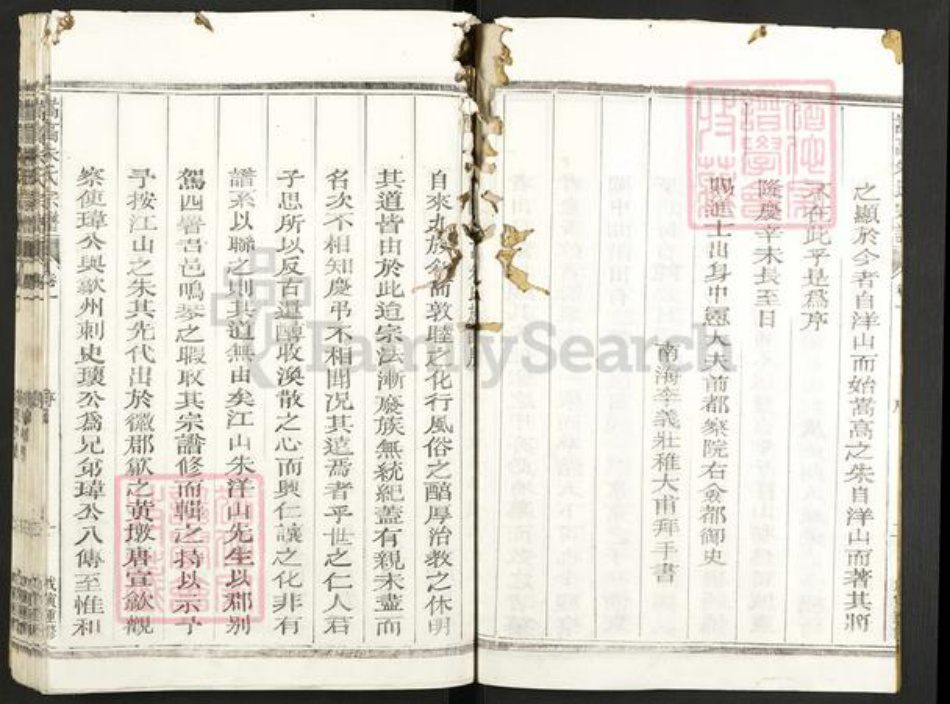 之顯於今者自洋山而始嵩高之朱自洋山而著其將
不在此乎是為序
隆慶辛未長至日
賜進士出身中憲大夫前都察院右僉都御史
南海李義壯稚大甫拜手書
自來九族 而敦睦之化行風俗之醇厚治教之休明
其道皆由於此迨宗法漸廢族無統紀蓋有親未盡而
名次不相知慶弔不相聞况其遠焉者乎世之仁人君
子思所以反古還醇收渙散之心而興仁讓之化非有
譜系以聯之則其道無由矣江山朱洋山先生以郡别
駕西署吾邑鳴琴之暇取其宗譜修而輯之持以示予
予按江山之朱其先代出於徽郡歙之黃墩唐宣歙觀
察使瑋公與歙州刺史瓌公為兄弟瑋公八傳至惟和
嵩高朱氏宗譜 卷一
戊寅重修
FamilySearch